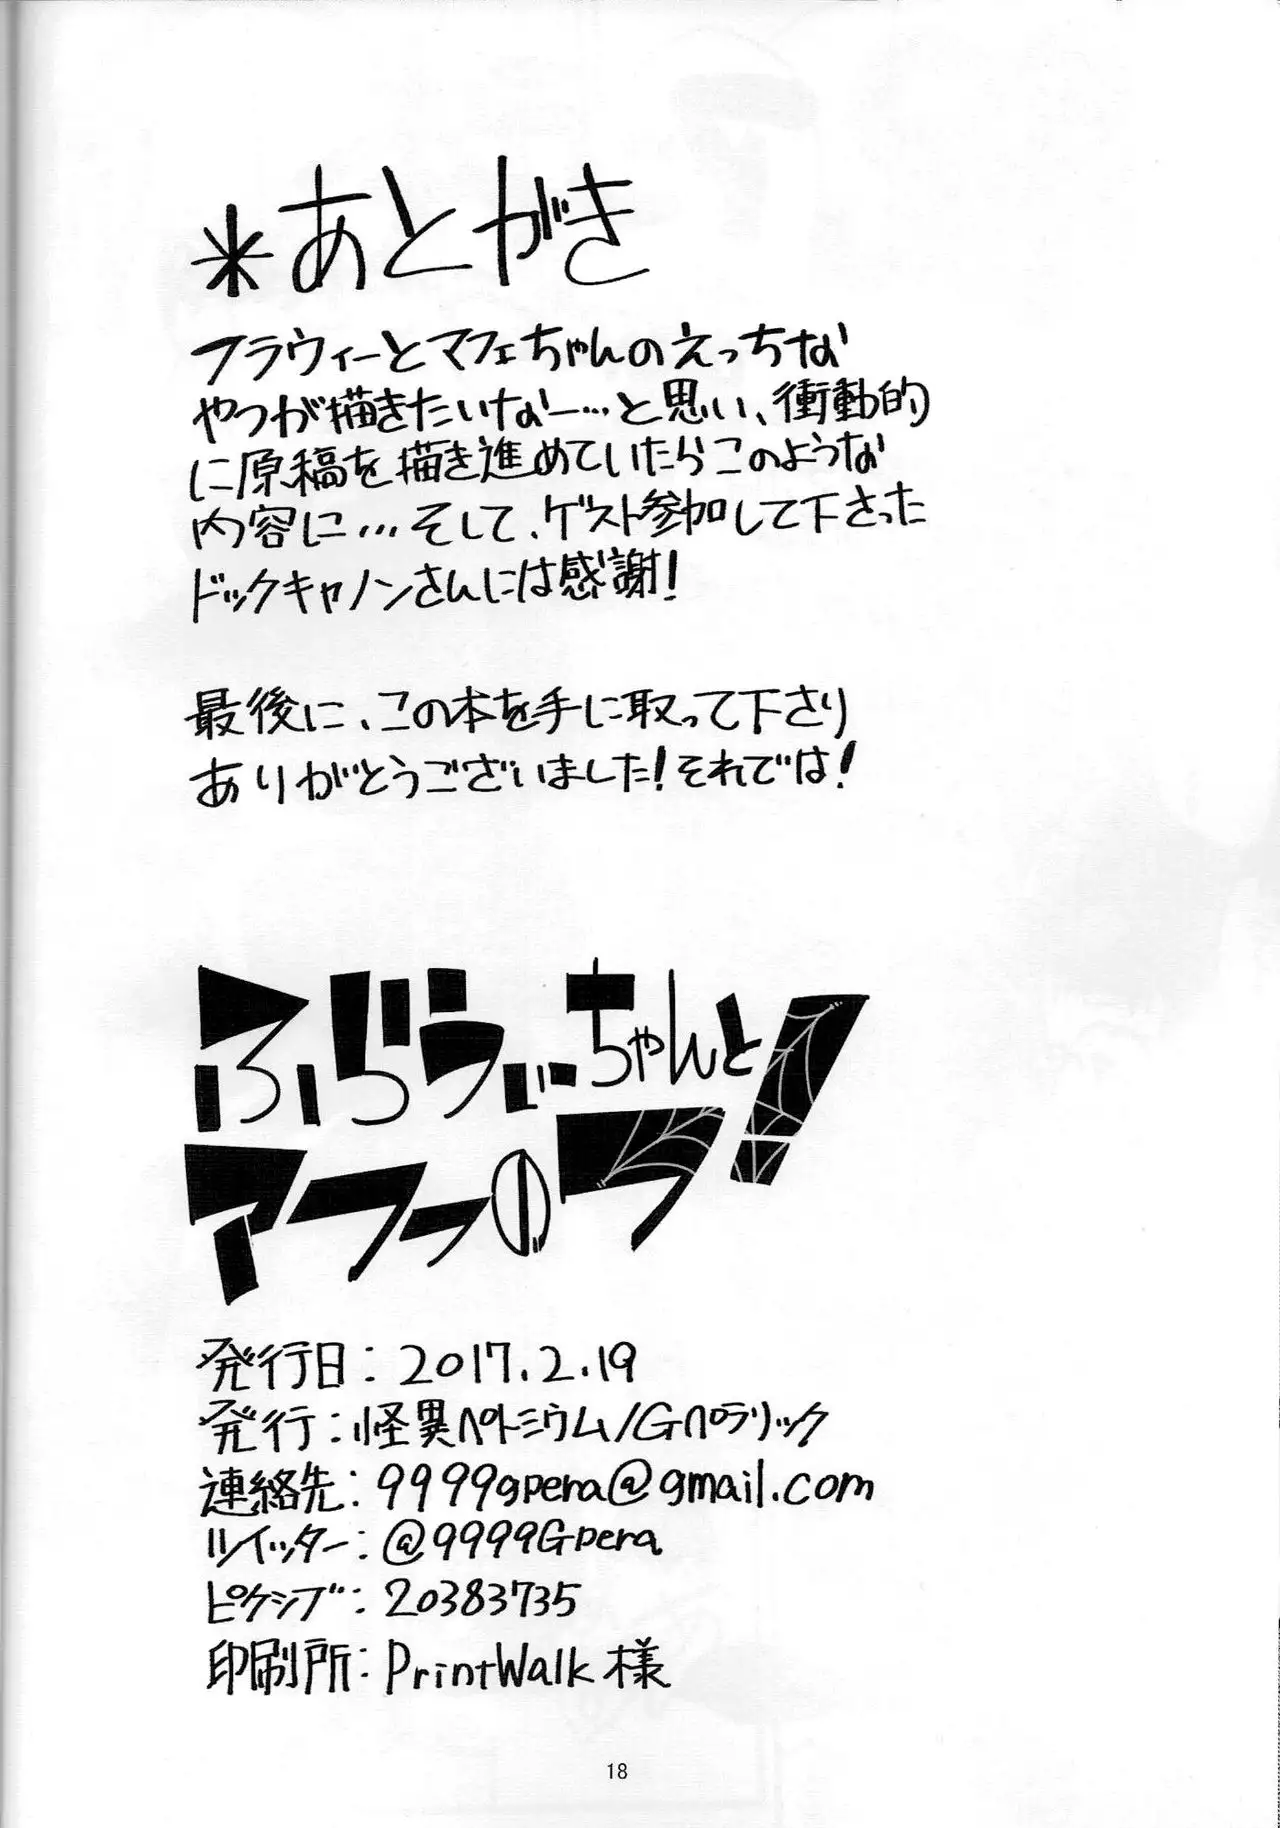 *あとがき
フラウィーとマフェちゃんのえっちな
やつが描きたいなー…と思い、衝動的
に原稿を描き進めていたらこのような
内容に…そして、ゲスト参加して下さった
ドックキャノンさんには感謝!
最後に、この本を手に取って下さり
ありがとうございました!それでは!
ふらうぃーちゃんと
アフターのマ!
発行日:2017.2.19
発行:怪異ペトミウム/Gペラリック
連絡先:9999gpera@gmail.com
ツイッター:@9999Gpera
ピクシブ:20383735
印刷所:PrintWalk様
18